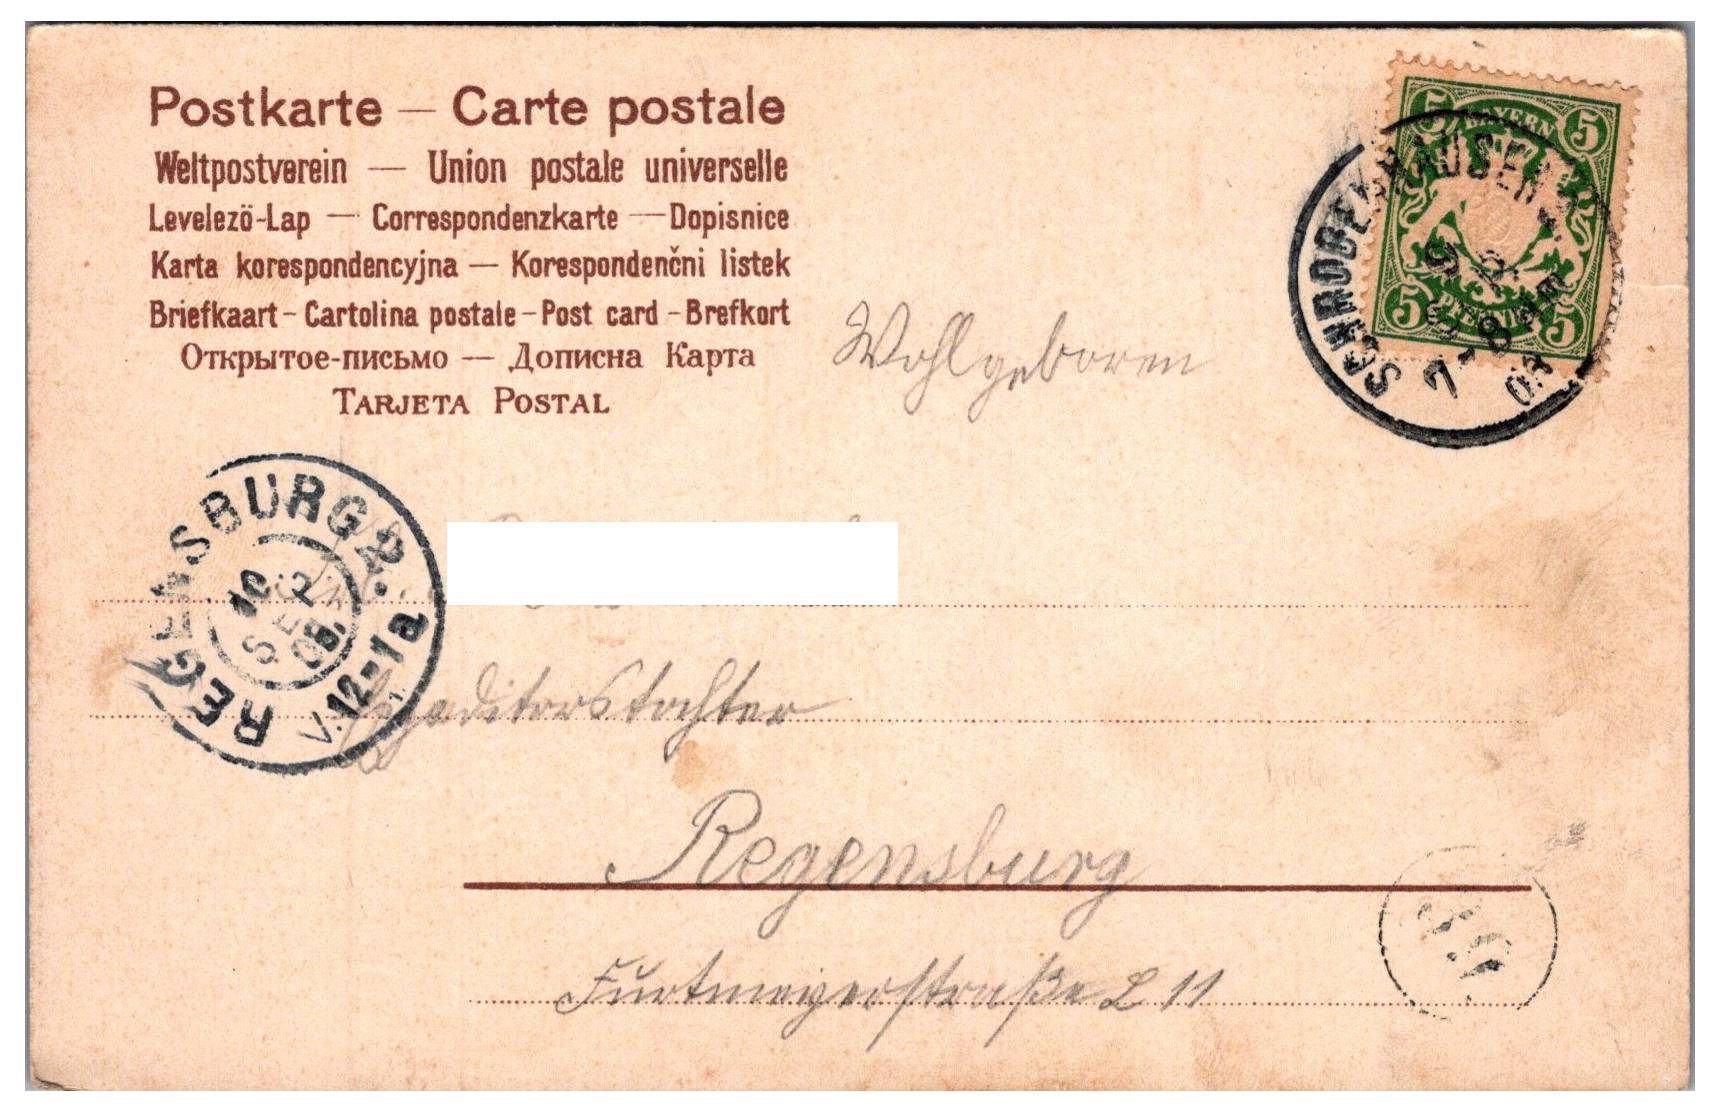 Postkarte — Carte postale
Weltpostverein — Union postale universelle
Levelezö-Lap — Correspondenzkarte — Dopisnice
Karta korespondencyjna — Korespondenčni listek
Briefkaart - Cartolina postale - Post card - Brefkort
Открытое-письмо — Дописна Карта
TARJETA POSTAL
BAYERN
5 5
5 5
SCHROBENHAUSEN
9 SEP
7-8
03
Wohlgeboren
REGENSBURG 2.
10
SEP
03.
V. 12-1a
Expaditorstochter
Regensburg
Furtmeyerstraße L 11